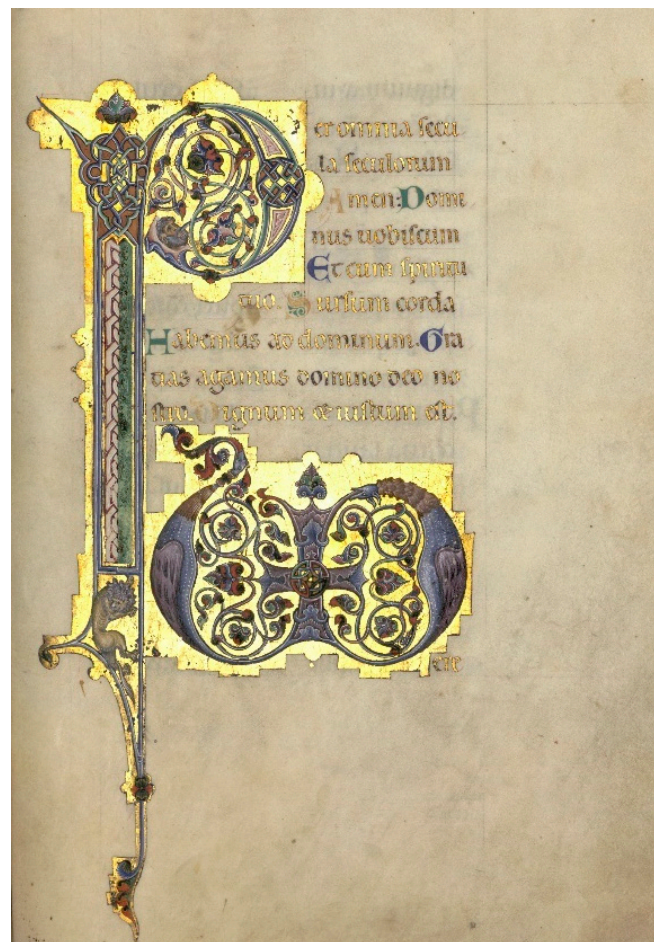 Per omnia secu
la seculorum
Amen: Domi
nus uobiscum
Et cum spiritu
tuo. Sursum corda
Habemus ad dominum. Gra
tias agamus domino deo no
stro. Dignum & iustum est.
ere